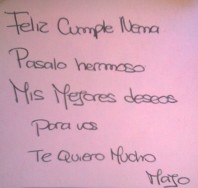 Feliz Cumple Nema
Pasalo hermoso
Mis Mejores deseos
para vos
Te Quiero Mucho
Majo